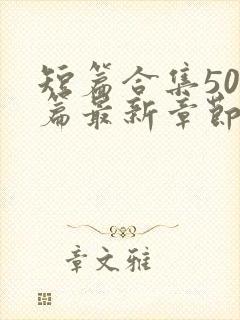 短篇合集50
篇最新章节
章文雅